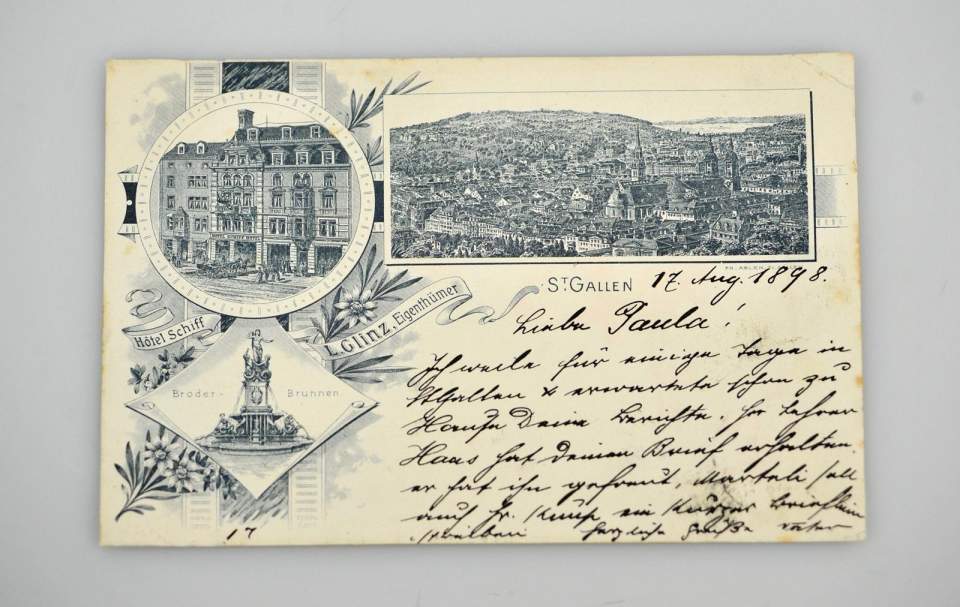 Hôtel Schiff
L. Glinz, Eigenthümer
Broder-Brunnen
ST. GALLEN 17. Aug. 1898.
Liebe Paula!
Ich weile für einige Tage in
StGallen & erwartete schon zu
Hause Deine Berichte. Hr Lehrer
Haas hat deinen Brief erhalten.
er hat ihn gefreut, Marteli soll
auch Hr. ein kurzes Brieflein
schreiben herzliche Grüße Vater
17